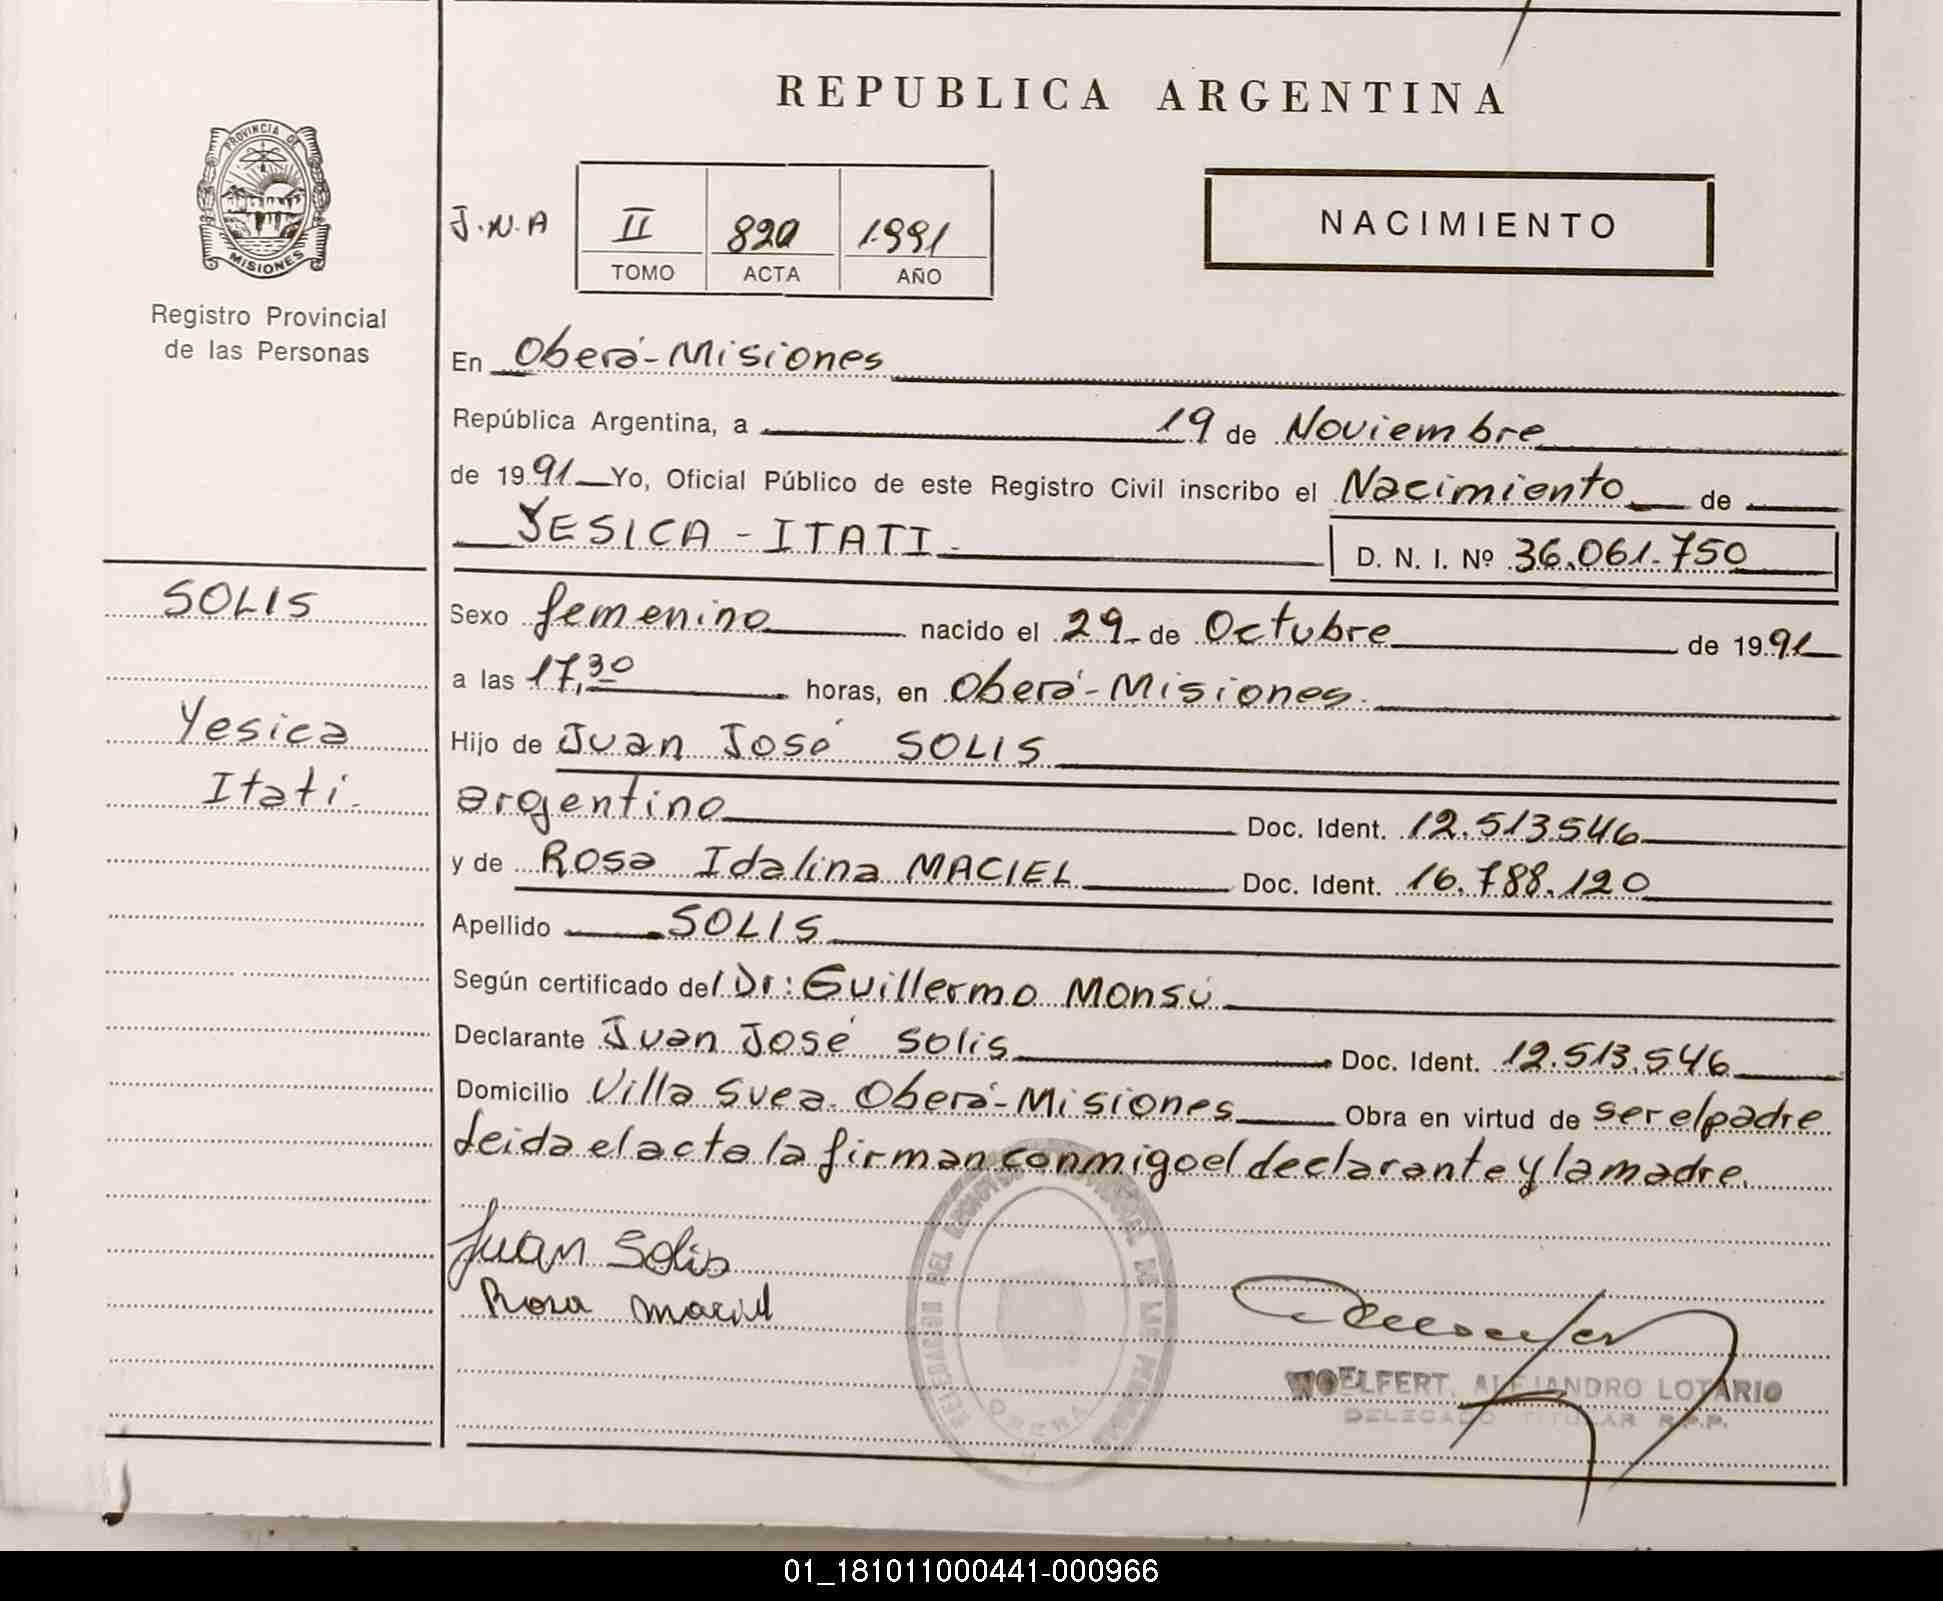 REPUBLICA ARGENTINA
PROVINCIA DE
MISIONES
Registro Provincial
de las Personas
J.N.A
II 820 1991
TOMO ACTA AÑO
NACIMIENTO
En Oberá-Misiones
República Argentina, a 19 de Noviembre
de 1991 Yo, Oficial Público de este Registro Civil inscribo el Nacimiento de
YESICA - ITATI D. N. I. Nº 36.061.750
SOLIS
Yesica
Itati.
Sexo femenino nacido el 29 de Octubre de 1991
a las 17,30 horas, en Oberá-Misiones.
Hijo de Juan José SOLIS
argentino Doc. Ident. 12.513.546
y de Rosa Idalina MACIEL Doc. Ident. 16.788.120
Apellido SOLIS
Según certificado del Dr: Guillermo Monsú
Declarante Juan José Solis Doc. Ident. 12.513.546
Domicilio Villa Svea Oberá-Misiones Obra en virtud de ser el padre
Leida el acta la firman conmigo el declarante y la madre.
Juan Solis
Rosa Maciel
WOELFERT, ALEJANDRO LOTARIO
DELEGADO TITULAR R.P.P.
01_181011000441-000966